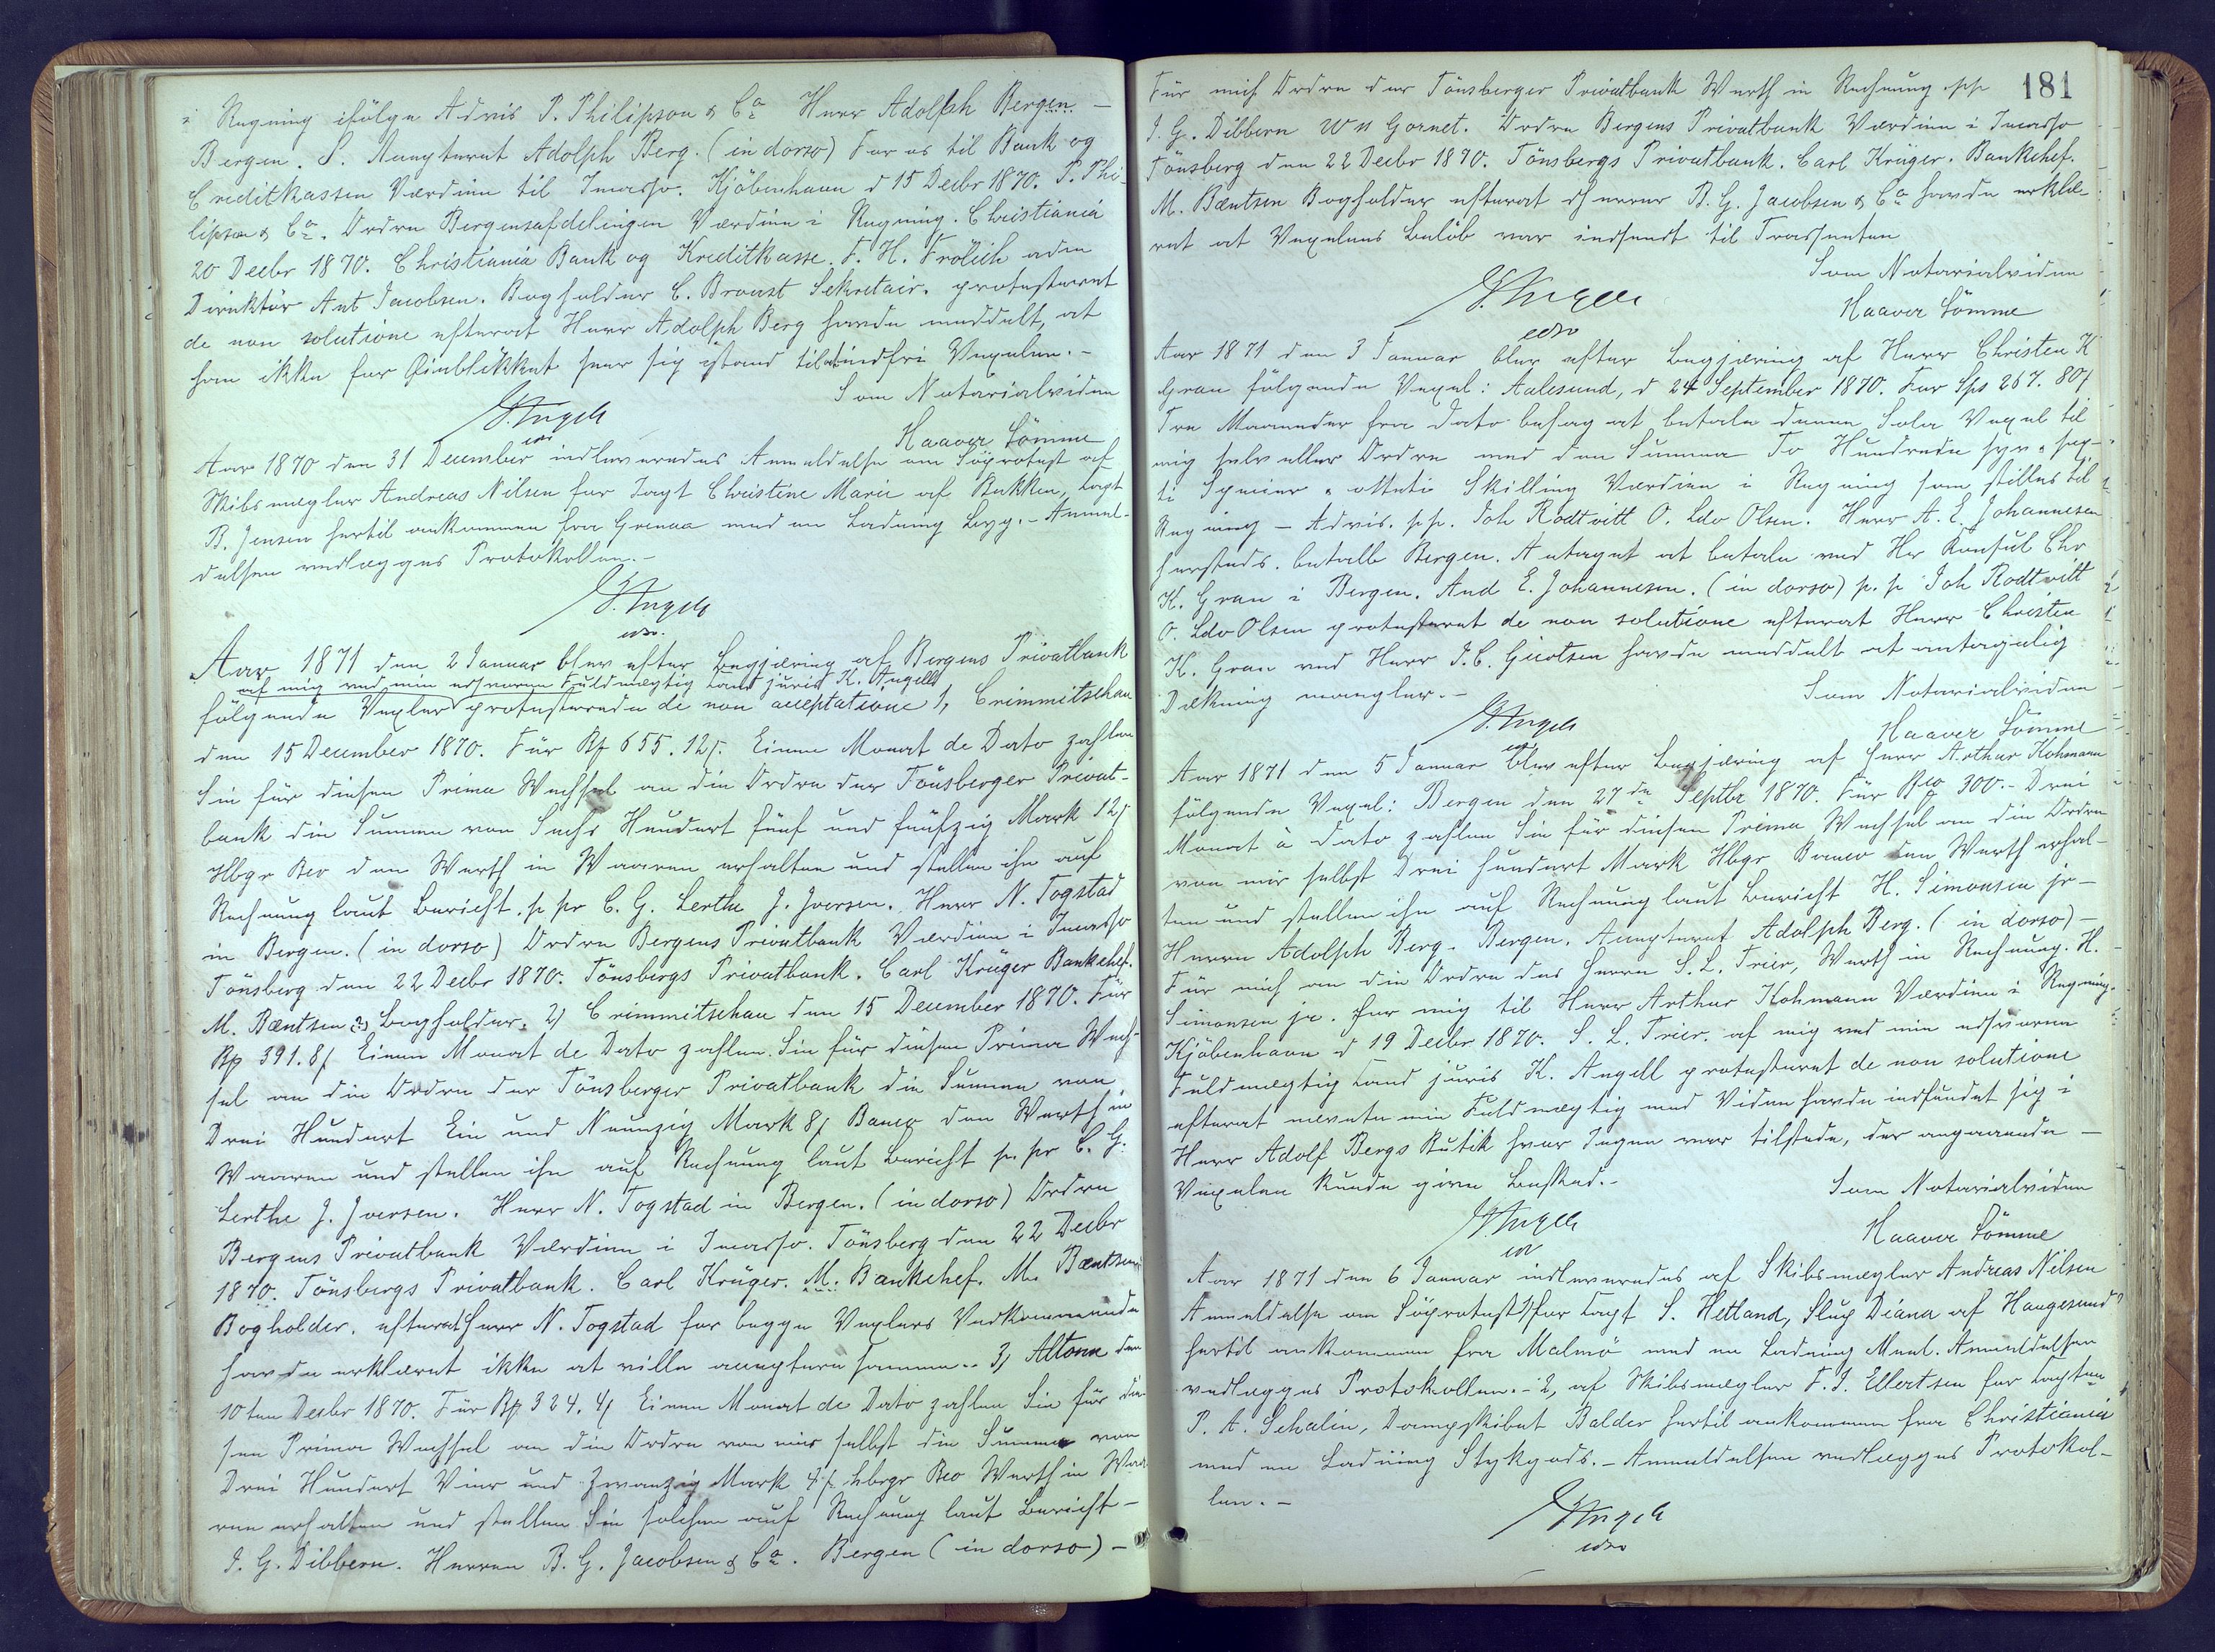 i Regning ifölge Advis P. Philipson & Co Herr Adolph Bergen. –
Bergen. S. Accepteret Adolph Berg. (in dorso) For os til Bank og
Creditkassen Værdien til Incasso. Kjöbenhavn d 15 Decbr 1870. P. Phi-
lipson & Co. Ordre Bergensafdelingen Værdien i Regning. Christiania
20 Decbr 1870. Christiania Bank og Kreditkasse. F. H. Frölich adm
Direktör Ant Jacobsen. Bogholder C. Broust Sekretair. protesteret
de non solutione efterat Herr Adolph Berg havde meddelt, at
han ikke for Öieblikket saae sig istand til at indfri Vexelen. –
Som Notarialvidne
Haaver Sömme
Aar 1870 den 31 December indleveredes Anmeldelse om Söprotest af
Skibsmægler Andreas Nilsen for Jagt Christine Marie af Bakken, Capt
B. Jensen hertil ankommen fra Grenaa med en Ladning Byg. – Anmel-
delsen vedlægges Protokollen. –
Aar 1871 den 2 Januar blev efter Begjæring af Bergens Privatbank
af mig ved min edsvorne Fuldmægtig Cand juris K. Angell
fölgende Vexler protesterede de non acceptatione 1, Crimmitschau
den 15 December 1870. Für Bf 655.12ß. Einen Monat de Dato zahlen
Sie für diesen Prima Wechsel an die Ordre der Tönsberger Privat-
bank die Summe von Sechs Hundert fünf und fünfzig Mark 12ß
Hbgr Bco den Werth in Waaren erhalten und stellen ihn auf
Rechnung laut Bericht. p pr C. G. Lerthe J. Jversen. Herr N. Togstad
in Bergen. (in dorso) Ordre Bergens Privatbank Værdien i Incasso
Tönsberg den 22 Decbr 1870. Tönsbergs Privatbank. Carl Krüger Bankchef.
M. Bæntsen Bogholder. 2) Crimmitschau den 15 December 1870. Für
Bf 391.8ß Einen Monat de Dato zahlen Sie für diesen Prima Wech-
sel an die Ordre der Tönsberger Privatbank die Summe von
Drei Hundert Ein und Neunzig Mark 8ß Banco den Werth in
Waaren und stellen ihn auf Rechnung laut Bericht p. pr C. G.
Lerthe J. Jversen. Herr N. Togstad in Bergen. (in dorso) Ordre
Bergens Privatbank Værdien i Incasso. Tönsberg den 22 Decbr
1870. Tönsbergs Privatbank. Carl Krüger. M. Bankchef. M. Bæntsen
Bogholder. efterat Herr N. Togstad for begge Vexlers Vedkommende
havde erklæret ikke at ville acceptere samme.. 3) Altona den
10ten Decbr 1870. Für Bf 324.4ß Einen Monat de Dato zahlen Sie für die-
sen Prima Wechsel an die Ordre von mir selbst die Summe von
Drei Hundert Vier und Zwanzig Mark 4ß hbrgr Bco Werth in Waa
ren erhalten und stellen Sie solchen auf Rechnung laut Bericht –
J. G. Dibbern. Herren B. G. Jacobsen & Co. Bergen (in dorso) –
181
Für mich Ordre der Tönsberger Privatbank Werth in Rechnung pp
J. G. Dibbern Wm Gornet. Ordre Bergens Privatbank Værdien i Incasso
Tönsberg den 22 Decbr 1870. Tönsbergs Privatbank. Carl Krüger. Bankchef.
M. Bæntsen Bogholder efterat Herrer B. G. Jacobsen & Co havde erklæ-
ret at Vexelens Belöb var indsendt til Trassenten
Som Notarialvidne
Haaver Sömme
Aar 1871 den 3 Januar blev efter Begjæring af Herr Christen K
Gran fölgende Vexel: Aalesund, d 24 September 1870. For Sps 267. 80ß
Tre Maaneder fra Dato behag at betale denne Sola Vexel til
mig selv eller Ordre med den Summa To Hundrede syv & sex-
ti Specier & otteti Skilling Værdien i Regning som stilles til
Regning – Advis. p.p. Joh Rodtvitt O. Ldv Olsen. Herr A. E. Johannesen
hersteds. betalb Bergen. Antaget at betale ved Hr Konsul Chr
K. Gran i Bergen. And E. Johannesen. (in dorso) p. p Joh Rodtvitt
O. Ldv Olsen protesteret de non solutione efterat Herr Christen
K. Gran ved Herr J. C. Giertsen havde meddelt at antagelig
Dækning mangler. –
Som Notarialvidne
Haaver Sömme
Aar 1871 den 5 Januar blev efter Begjæring af Herr Arthur Kohmann
fölgende Vexel: Bergen den 27de Septbr 1870. Für Bco 300.– Drei
Monat à Dato zahlen Sie für diesen Prima Wechsel an die Ordre
von mir selbst Drei Hundert Mark Hbgr Banco den Werth erhal-
ten und stellen ihn auf Rechnung laut Bericht H. Simonsen jr –
Herrn Adolph Berg. Bergen. Accepteret Adolph Berg. (in dorso) –
Für mich an die Ordre des Herrn S. L. Trier, Werth in Rechnung. H.
Simonsen jr. For mig til Herr Arthur Kohmann Værdien i Regning.
Kjöbenhavn d 19 Decbr 1870. S. L. Trier. af mig ved min edsvorne
Fuldmægtig Cand juris K. Angell protesteret de non solutione
efterat nævnte min Fuldmægtig med Vidne havde indfundet sig i
Herr Adolf Bergs Butik hvor Ingen var tilstede, der angaaende –
Vexelen kunde give Besked. –
Som Notarialvidne
Haaver Sömme
Aar 1871 den 6 Januar indleveredes af Skibsmægler Andreas Nilsen
Anmeldelse om Söprotest for Capt S. Hetland, Slup Diana af Haugesund
hertil ankommen fra Malmö med en Ladning Meel. Anmeldelsen
vedlægges Protokollen. – 2, af Skibsmægler F. J. Ellertsen for Capten
P. A. Schalin, Dampskibet Balder hertil ankommen fra Christiania
med en Ladning Stykgods. – Anmeldelsen vedlægges Protokol-
len. –